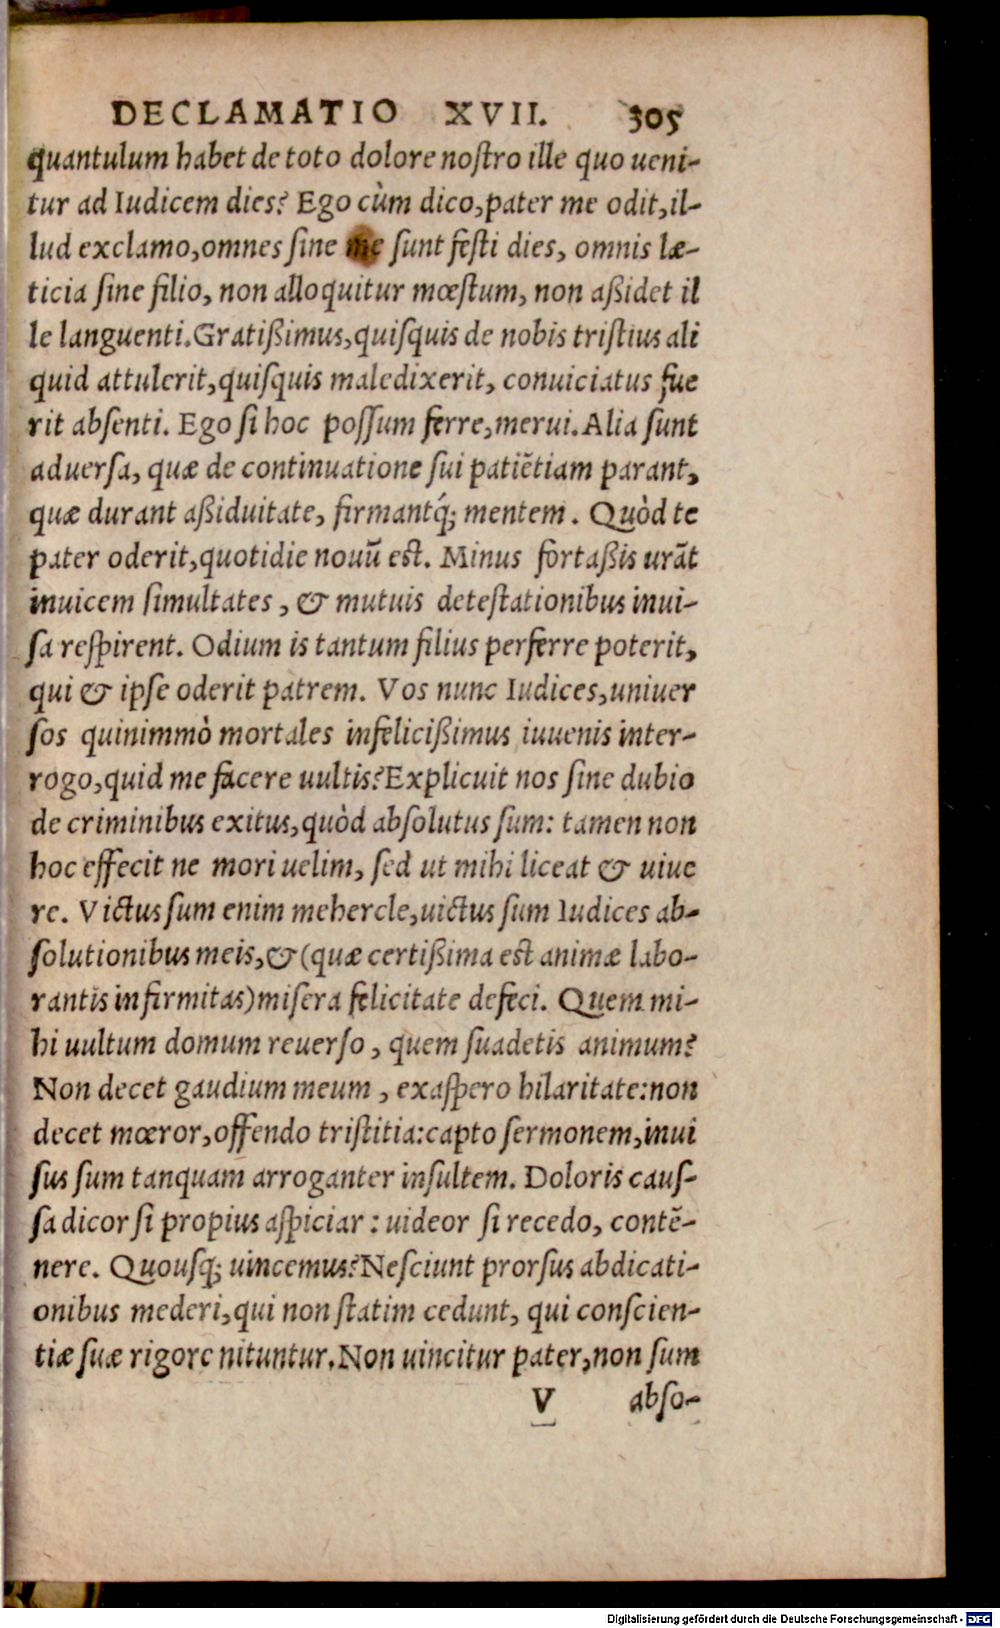 DECLAMATIO XVII. 305
quantulum habet de toto dolore noſtro ille quo ueni-
tur ad Iudicem dies? Ego cùm dico, pater me odit, il-
lud exclamo, omnes ſine me ſunt feſti dies, omnis læ-
ticia ſine filio, non alloquitur mœſtum, non aßidet il
le languenti. Gratißimus, quiſquis de nobis triſtius ali
quid attulerit, quiſquis maledixerit, conuiciatus fue
rit abſenti. Ego ſi hoc poſſum ferre, merui. Alia ſunt
aduerſa, quæ de continuatione ſui patiẽtiam parant,
quæ durant aßiduitate, firmantq́; mentem. Quòd te
pater oderit, quotidie nouũ est. Minus fortaßis urãt
inuicem ſimultates, & mutuis deteſtationibus inui-
ſa reſpirent. Odium is tantum filius perferre poterit,
qui & ipſe oderit patrem. Vos nunc Iudices, uniuer
ſos quinimmò mortales infelicißimus iuuenis inter-
rogo, quid me facere uultis? Explicuit nos ſine dubio
de criminibus exitus, quòd abſolutus ſum: tamen non
hoc effecit ne mori uelim, ſed ut mihi liceat & uiue
re. Victus ſum enim mehercle, uictus ſum Iudices ab-
ſolutionibus meis, & (quæ certißima est animæ labo-
rantis infirmitas) miſera felicitate defeci. Quem mi-
hi uultum domum reuerſo, quem ſuadetis animum?
Non decet gaudium meum, exaſpero hilaritate: non
decet mœror, offendo triſtitia: capto ſermonem, inui
ſus ſum tanquam arroganter inſultem. Doloris cauſ-
ſa dicor ſi propius aſpiciar: uideor ſi recedo, contẽ-
nere. Quouſq; uincemus? Neſciunt prorſus abdicati-
onibus mederi, qui non ſtatim cedunt, qui conſcien-
tiæ ſuæ rigore nituntur. Non uincitur pater, non ſum
V abſo-
Digitalisierung gefördert durch die Deutsche Forschungsgemeinschaft - DFG